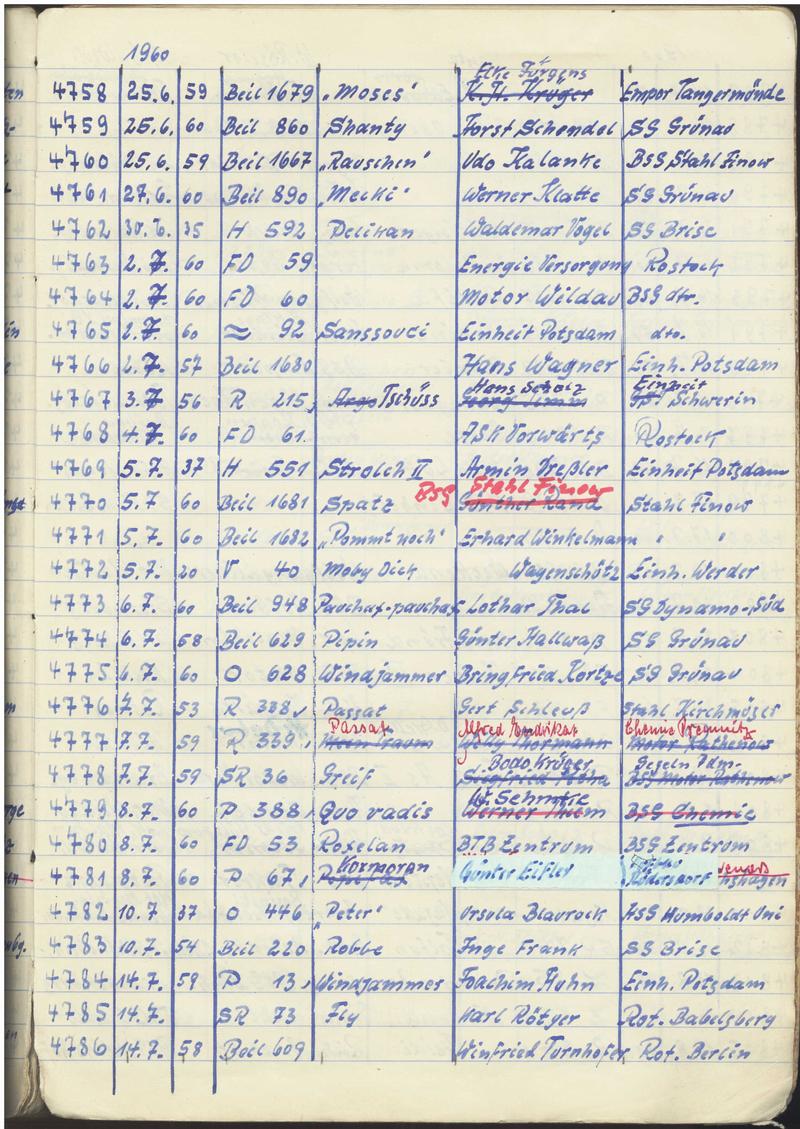 1960
Elke Jürgens
4758 25.6. 59 Beil 1679 „Moses' K.Fr. Krüger Empor Tangermünde
4759 25.6. 60 Beil 860 Shanty Horst Schendel SG Grünau
4760 25.6. 59 Beil 1667 „Rauschen' Udo Kalanke BSG Stahl Finow
4761 27.6. 60 Beil 890 „Mecki' Werner Klatte SG Grünau
4762 30.6. 35 H 592 Pelikan Waldemar Vogel SG Brise
4763 2.7. 60 FD 59 Energie Versorgung Rostock
4764 2.7. 60 FD 60 Motor Wildau BSG dto.
4765 2.7. 60 ≈ 92 Sanssouci Einheit Potsdam dto.
4766 2.7. 57 Beil 1680 Hans Wagner Einh. Potsdam
Hans Scholz Einheit
4767 3.7. 56 R 215, Argo Tschüss Schwerin
4768 4.7. 60 FD 61. ASK Vorwärts Rostock
4769 5.7. 37 H 551 Strolch II Armin Dreßler Einheit Potsdam
BSG Stahl Finow
4770 5.7 60 Beil 1681 Spatz Günther Rand Stahl Finow
4771 5.7. 60 Beil 1682 „Pommt noch' Erhard Winkelmann " "
4772 5.7. 20 V 40 Moby Dick Wagenschütz Einh. Werder
4773 6.7. 60 Beil 948 Pauchaf-pauchaf Lothar Thal SG Dynamo-Süd
4774 6.7. 58 Beil 629 Pipin Günter Hallwaß SG Grünau
4775 6.7. 60 O 628 Windjammer Bringfried Kortze SG Grünau
4776 7.7. 53 R 338, Passat Gert Schleuß Stahl Kirchmöser
Passat Alfred Endrikat Chemie Premnitz
4777 7.7. 59 R 339, Traum Willy Thormann Motor Rathenow
Bodo Krüger Segeln Pdm-
4778 7.7. 59 SR 36 Greif Siegfried BSG Motor Rathenow
W. Schmitke
4779 8.7. 60 P 388, Quo vadis Werner Thiem BSG Chemie
4780 8.7. 60 FD 53 Roxelan BTB Zentrum BSG Zentrum
Kormoran
4781 8.7. 60 P 67, Günter Eifler Rüdersdorf
4782 10.7 37 O 446 „Peter' Ursula Blaurock HSG Humboldt Uni
4783 10.7. 54 Beil 220 Robbe Inge Frank SG Brise
4784 14.7. 59 P 13, Windjammer Joachim Huhn Einh. Potsdam
4785 14.7. SR 73 Fly Karl Rötger Rot. Babelsberg
4786 14.7. 58 Beil 609 Winfried Turnhofer Rot. Berlin